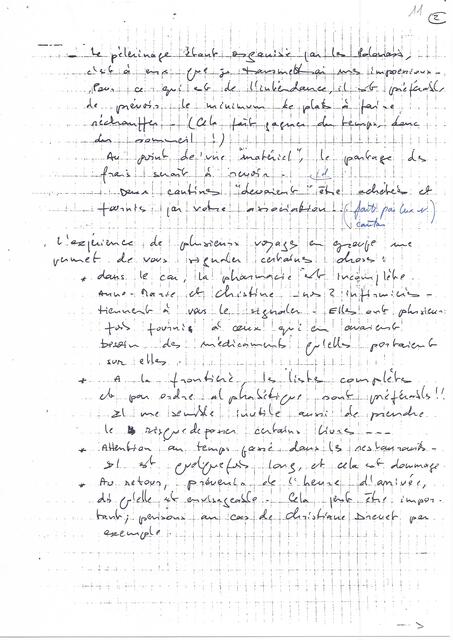 11
2
- Le pèlerinage étant organisé par les Polonais,
c'est à eux que je transmettrai mes impressions.
Pour ce qui est de l'intendance, il est préférable
de prévoir le minimum de plats à faire
réchauffer - (Cela fait gagner du temps, donc
du sommeil !)
Au point de vue "matériel", le partage des
frais serait à revoir.
Deux cantines "devaient" être achetées et
fournies par votre association. (fait par
L'expérience de plusieurs voyages en groupe me
permet de vous signaler certaines choses :
* dans le car, la pharmacie est incomplète.
Anne-Marie et Christine - nos 2 infirmières -
tiennent à vous le signaler. Elles ont plusieurs
fois fourni à ceux qui en avaient
besoin des médicaments qu'elles portaient
sur elles.
* A la frontière, les listes complètes
et par ordre alphabétique sont préférables !!
Il me semble inutile aussi de prendre
le risque de passer certains livres ---
* Attention au temps passé dans les restaurants.
Il est quelquefois long, et cela est dommage
* Au retour, prévenir de l'heure d'arrivée,
dès qu'elle est envisageable. Cela peut être impor-
tant ; pensons au cas de Christiane Drevet par
exemple.
-->